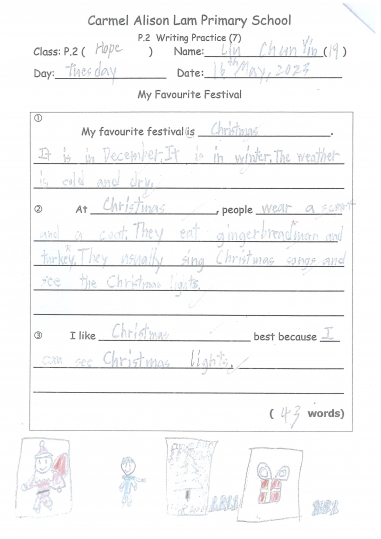 Carmel Alison Lam Primary School
P.2 Writing Practice (7)
Class: P.2 ( Hope ) Name: Lin Chun Yin (19)
Day: Tuesday Date: 16th May, 2023
My Favourite Festival
①
My favourite festival is Christmas.
It is in December. It is in winter. The weather
is cold and dry.
② At Christmas, people wear a scarf
and a coat. They eat gingerbread man and
turkey. They usually sing Christmas songs and
see the Christmas lights.
③ I like Christmas best because I
can see Christmas lights.
( 43 words)